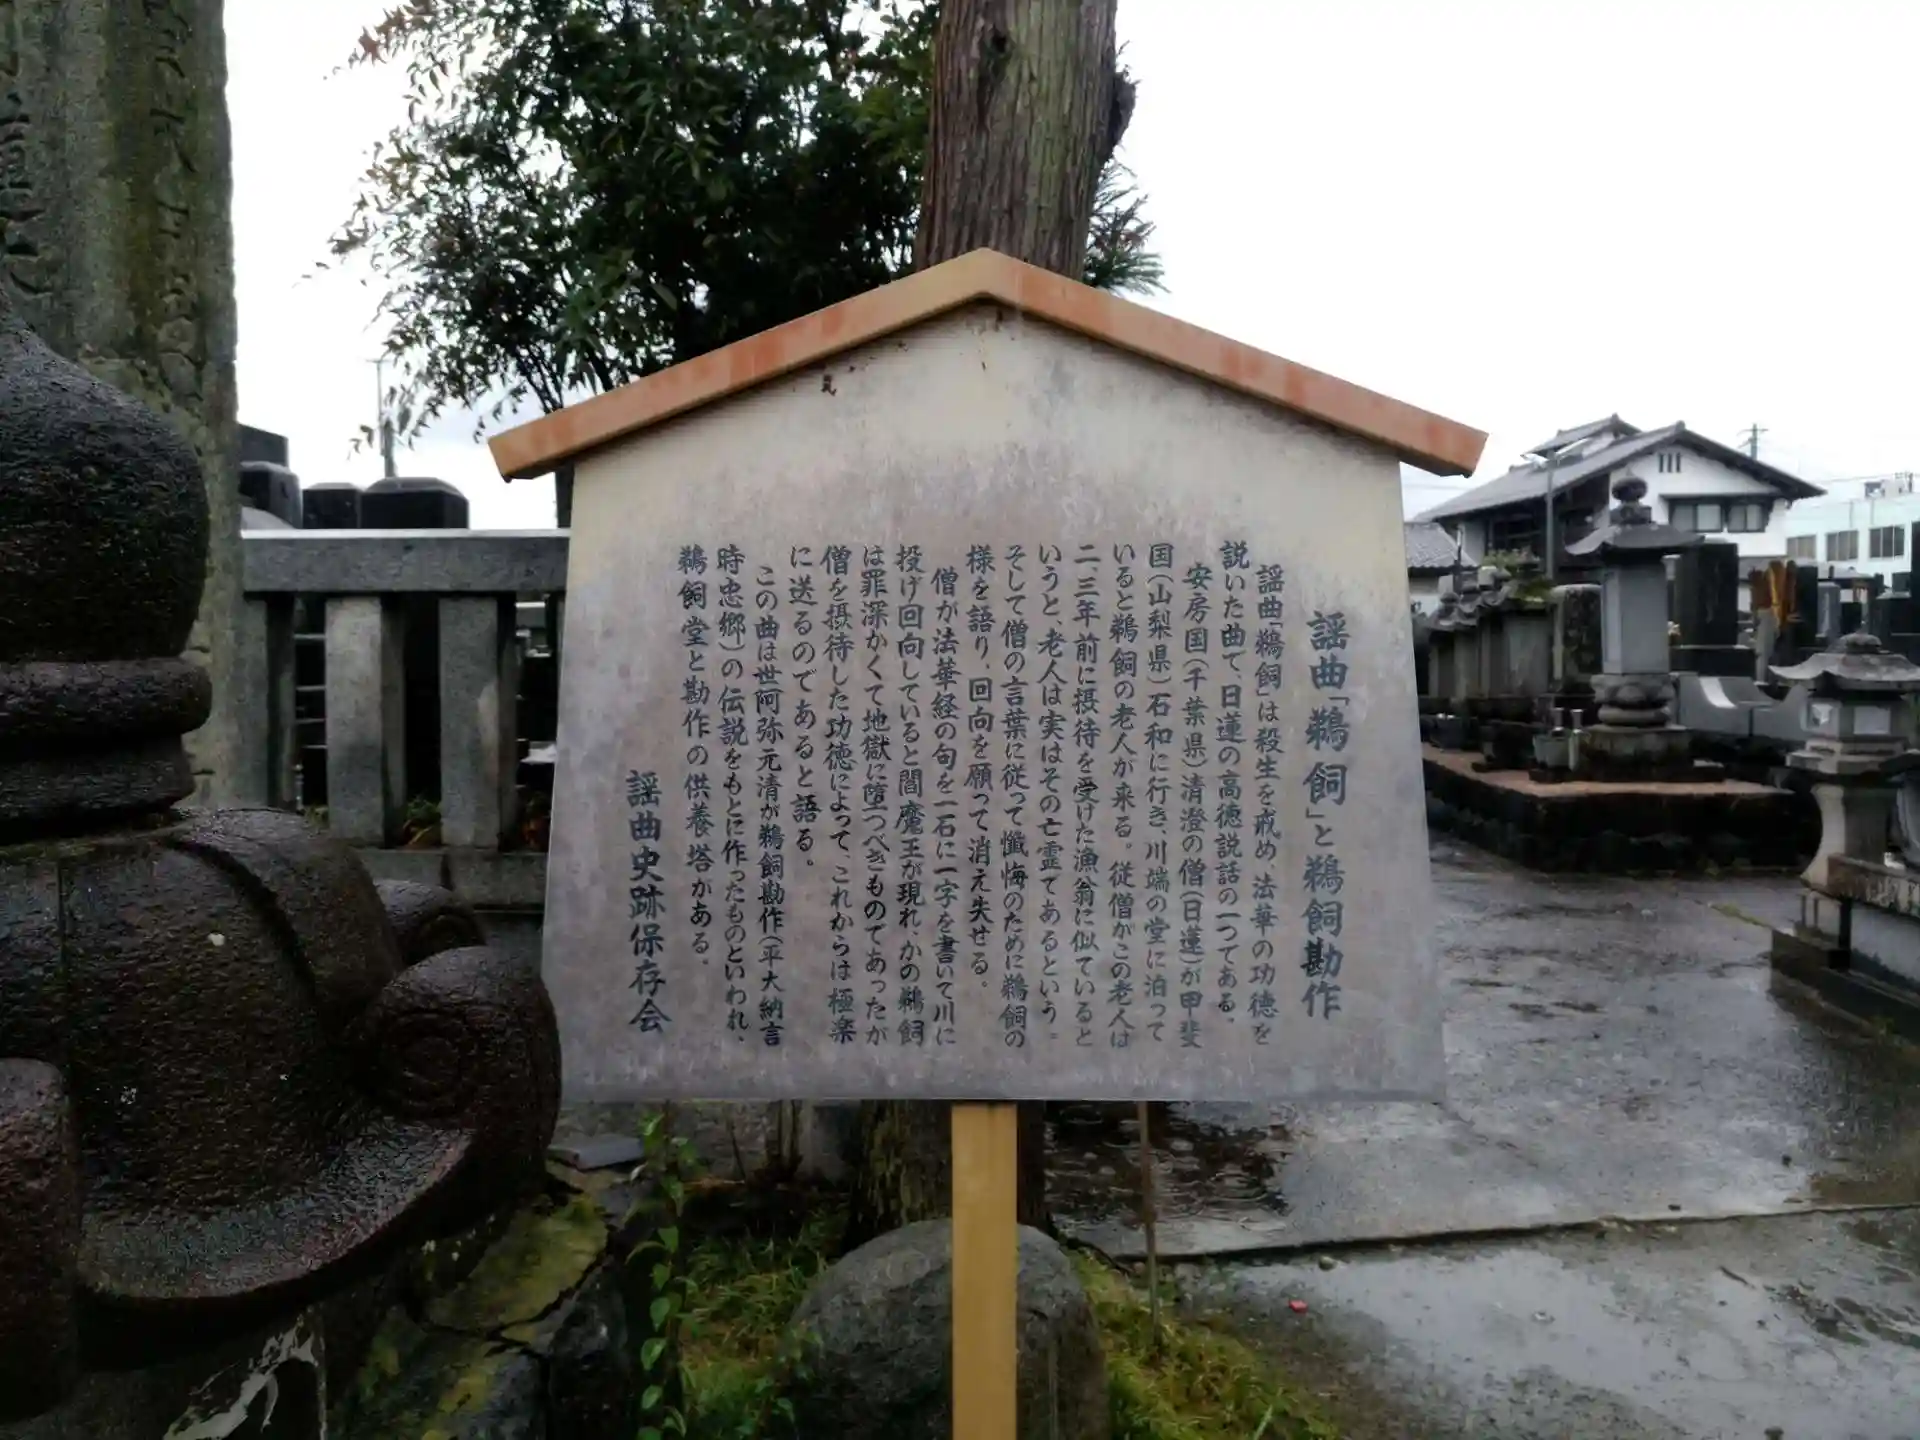 謡曲「鵜飼」と鵜飼勘作
謡曲「鵜飼」は殺生を戒め、法華の功徳を
説いた曲で、日蓮の高徳説話の一つである。
安房国(千葉県)清澄の僧(日蓮)が甲斐
国(山梨県)石和に行き、川端の堂に泊って
いると鵜飼の老人が来る。従僧がこの老人は
二、三年前に摂待を受けた漁翁に似ていると
いうと、老人は実はその亡霊であるという。
そして僧の言葉に従って懺悔のために鵜飼の
様を語り、回向を願って消え失せる。
僧が法華経の句を一石に一字を書いて川に
投げ回向していると閻魔王が現れ、かの鵜飼
は罪深かくて地獄に墮つべきものであったが
僧を摂待した功徳によって、これからは極楽
に送るのであると語る。
この曲は世阿弥元清が鵜飼勘作(平大納言
時忠郷)の伝説をもとに作ったものといわれ、
鵜飼堂と勘作の供養塔がある。
謡曲史跡保存会